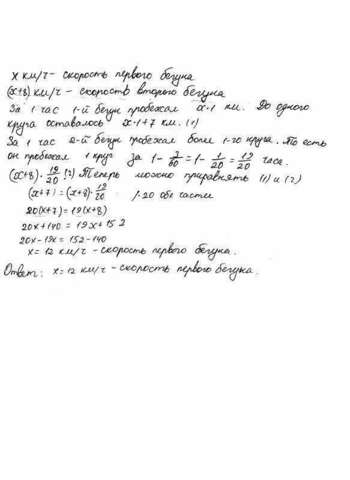 x км/ч - скорость первого бегуна
(x+8) км/ч - скорость второго бегуна
За 1 час 1-й бегун пробежал x·1 км. До одного
круга оставалось x·1+7 км. (1)
За 1 час 2-й бегун пробежал более 1-го круга. То есть
он пробежал 1 круг за 1 - 3/60 = 1 - 1/20 = 19/20 часа.
(x+8)·19/20 (2) Теперь можно приравнять (1) и (2)
(x+7)=(x+8)·19/20 /·20 обе части
20(x+7)=19(x+8)
20x+140=19x+152
20x-19x=152-140
x=12 км/ч - скорость первого бегуна.
Ответ: x=12 км/ч - скорость первого бегуна.